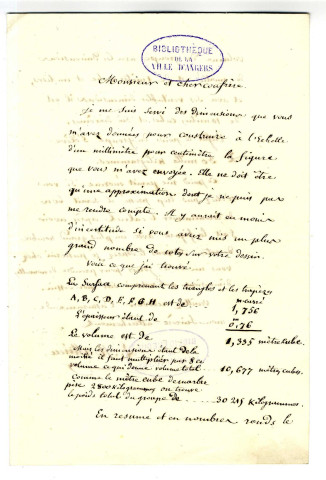 BIBLIOTHÈQUE
DE LA
VILLE D'ANGERS
Monsieur et cher confrère.
je me suis servi des dimensions que vous
m'avez données pour construire à l'échelle
d'un millimètre pour centimètre la figure
que vous m'avez envoyée. Elle ne doit être
qu'une approximation dont je ne puis pas
me rendre compte. Il y aurait eu moins
d'incertitude si vous aviez mis un plus
grand nombre de cotes sur votre dessin.
Voilà ce que j'ai trouvé
La surface comprenant les triangles et les trapèzes
A, B, C, D, E, F, G, H est de m carré 1,756
L'épaisseur étant de m 0,76
Le volume est de 1,335 mètre cube.
Mais les dimensions étant de la
moitié il faut multiplier par 8 ce
volume ce qui donne volume total 10,677 mètres cubes
Comme le mètre cube de marbre
pèse 2800 kilogrammes on trouve
le poids total du groupe de 30 215 kilogrammes.
En resumé et en nombres ronds le